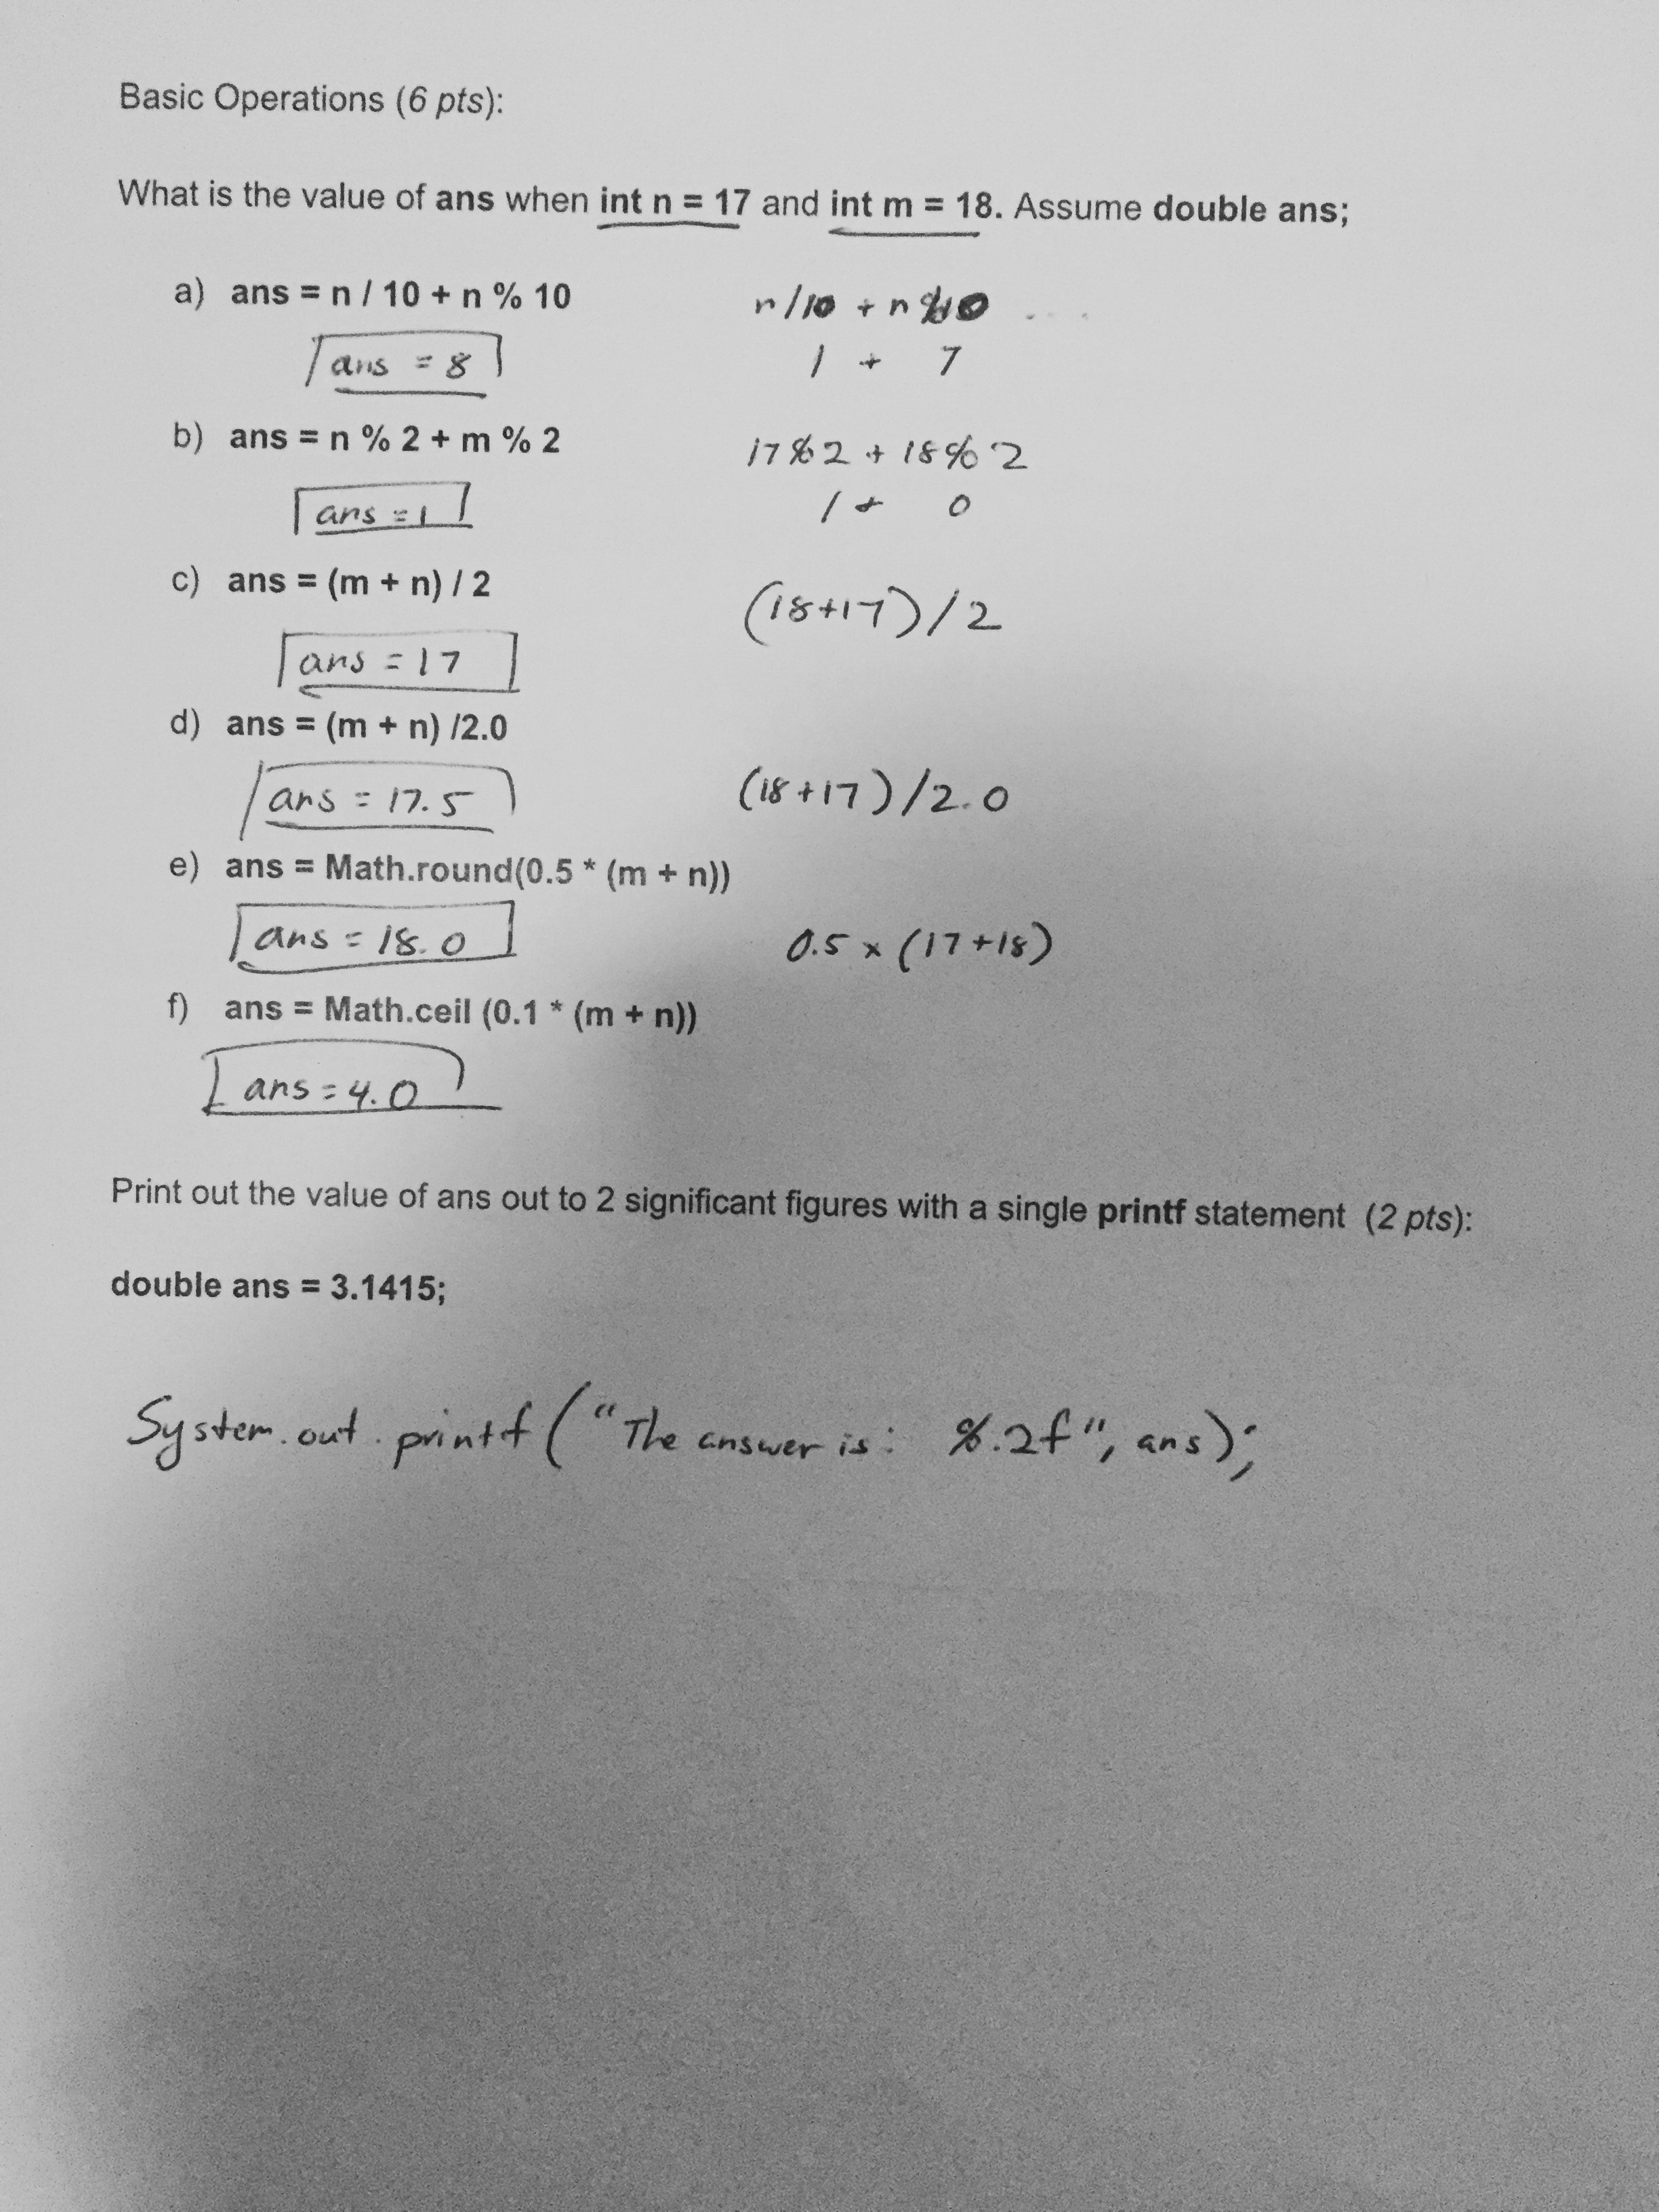 Basic Operations (6 pts):
What is the value of ans when int n = 17 and int m = 18. Assume double ans;
a) ans = n / 10 + n % 10
n/10 + n%10
ans = 8
1 + 7
b) ans = n % 2 + m % 2
17%2 + 18%2
ans = 1
1 + 0
c) ans = (m + n) / 2
(18+17)/2
ans = 17
d) ans = (m + n) /2.0
ans = 17.5
(18+17)/2.0
e) ans = Math.round(0.5 * (m + n))
ans = 18.0
0.5 x (17+18)
f) ans = Math.ceil (0.1 * (m + n))
ans = 4.0
Print out the value of ans out to 2 significant figures with a single printf statement (2 pts):
double ans = 3.1415;
System.out.printf("The answer is: %.2f", ans);